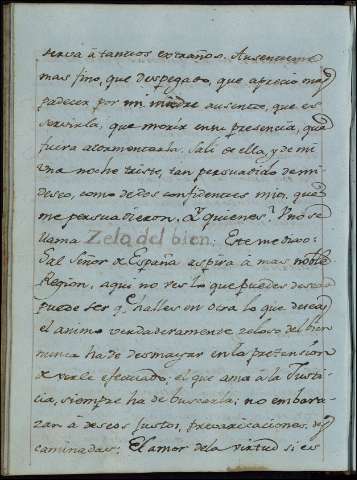 servá á tantos extraños. Ausenteme
mas fino, que despegado, que aprecio mas
padecer por mi madre ausente, que es
servirla; que morir en su presencia, que
fuera atormentarla. Salí de ella, y de mi
una noche triste, tan persuadido de mi
deseo, como de dos confidentes mios, que
me persuadieron. Y quienes? Uno se
llama Zelo del bien. Este me dixo:
Sal Señor de España aspira á mas noble
Region, aqui no ves lo que puedes desear
puede ser q.e halles en otra lo que deseas
el animo verdaderamente zeloso del bien
nunca ha de desmayar en la pretension
de verle efectuado, el que ama á la Justi
cia, siempre ha de buscarla; no embara
zan á deseos justos, prevaricaciones des
caminadas: El amor de la virtud si es